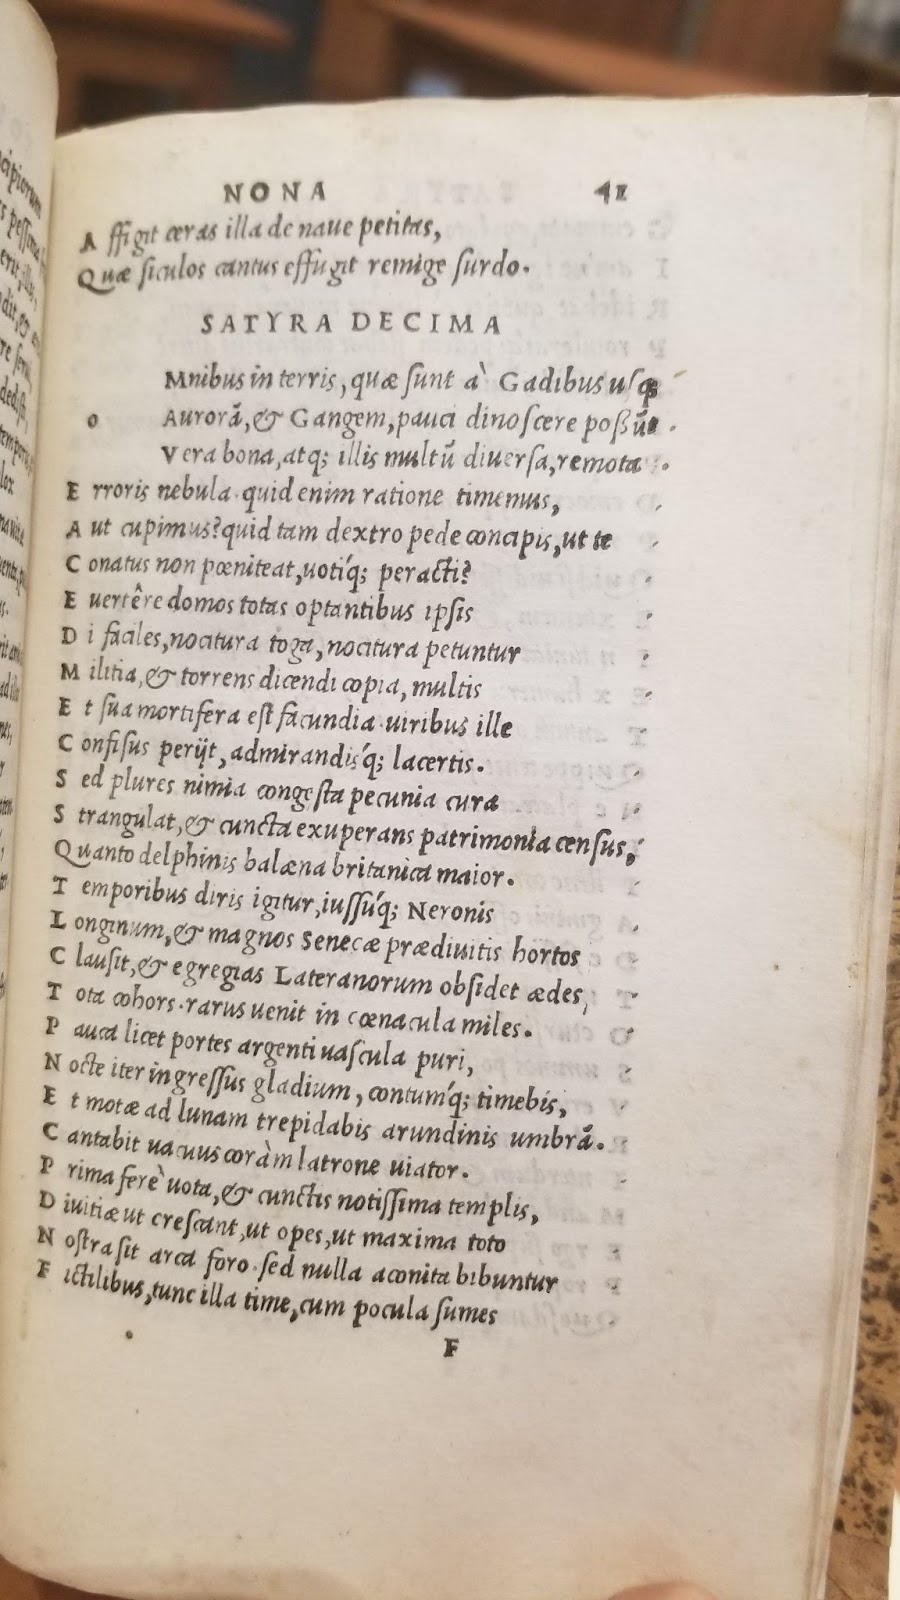 NONA 41
A ffigit ceras illa de naue petitas,
Quæ ſiculos cantus effugit remige ſurdo.
SATYRA DECIMA
Mnibus in terris, quæ ſunt à Gadibus uſq;
o Aurorã, & Gangem, pauci dinoſcere poßũt
Vera bona, atq; illis multũ diuerſa, remota
E rroris nebula. quid enim ratione timemus,
A ut cupimus? quid tam dextro pede concipis, ut te
C onatus non pœniteat, uotíq; peracti?
E uertêre domos totas optantibus ipſis
D i faciles, nocitura toga, nocitura petuntur
M ilitia, & torrens dicendi copia, multis
E t ſua mortifera eſt facundia. uiribus ille
C onfiſus perijt, admirandiśq; lacertis.
S ed plures nimia congeſta pecunia cura
S trangulat, & cuncta exuperans patrimonia cenſus,
Quanto delphinis balæna britanica maior.
T emporibus diris igitur, iuſſúq; Neronis
L onginum, & magnos Senecæ prædiuitis hortos
C lauſit, & egregias Lateranorum obſidet ædes,
T ota cohors. rarus uenit in cœnacula miles.
P auca licet portes argenti uaſcula puri,
N octe iter ingreſſus gladium, contumq́; timebis,
E t motæ ad lunam trepidabis arundinis umbrã.
C antabit uacuus coràm latrone uiator.
P rima ferè uota, & cunctis notiſſima templis,
D iuitiæ ut creſcant, ut opes, ut maxima toto
N oſtra sit arca foro. ſed nulla aconita bibuntur
F ictilibus, tunc illa time, cum pocula ſumes
F